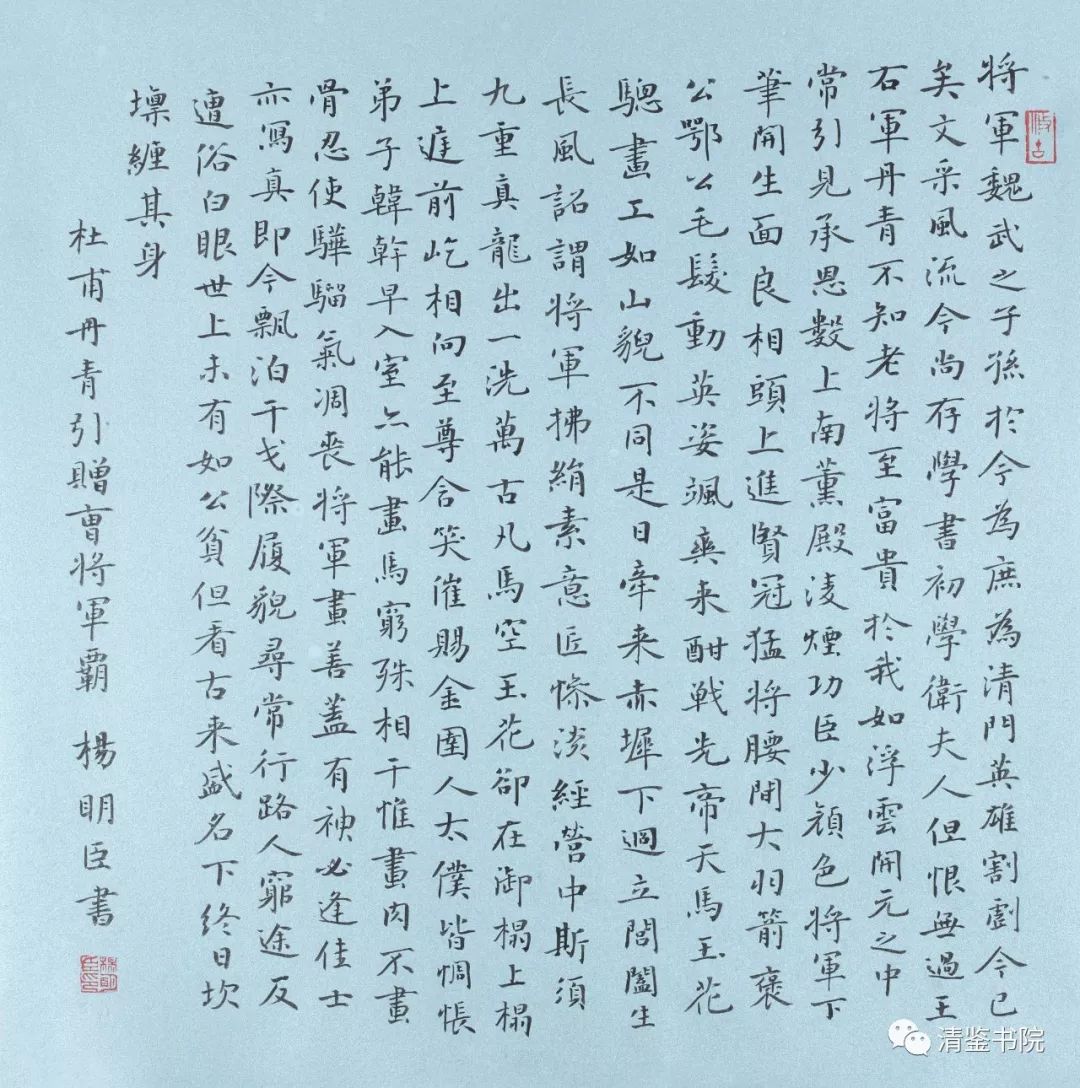 将軍魏武之子孫於今為庶為清門英雄割劃今已
矣文采風流今尚存學書初學衛夫人但恨無過王
右軍丹青不知老将至富貴於我如浮雲開元之中
常引見承恩數上南薰殿淩煙功臣少顔色将軍下
筆開生面良相頭上進賢冠猛将腰間大羽箭褒
公鄂公毛髮動英姿颯爽来酣戰先帝天馬玉花
驄畫工如山貌不同是日牽来赤墀下迥立閶闔生
長風詔謂将軍拂絹素意匠惨淡經營中斯須
九重真龍出一洗萬古凡馬空玉花卻在御榻上榻
上庭前屹相向至尊含笑催賜金圉人太僕皆惆悵
弟子韓幹早入室亦能畫馬窮殊相干惟畫肉不畫
骨忍使驊騮氣凋喪将軍畫善盖有神必逢佳士
亦寫真即今飄泊干戈際屢貌尋常行路人窮途反
遭俗白眼世上未有如公貧但看古来盛名下終日坎
壈纏其身
杜甫丹青引贈曹将軍霸 楊明臣書
清鉴书院